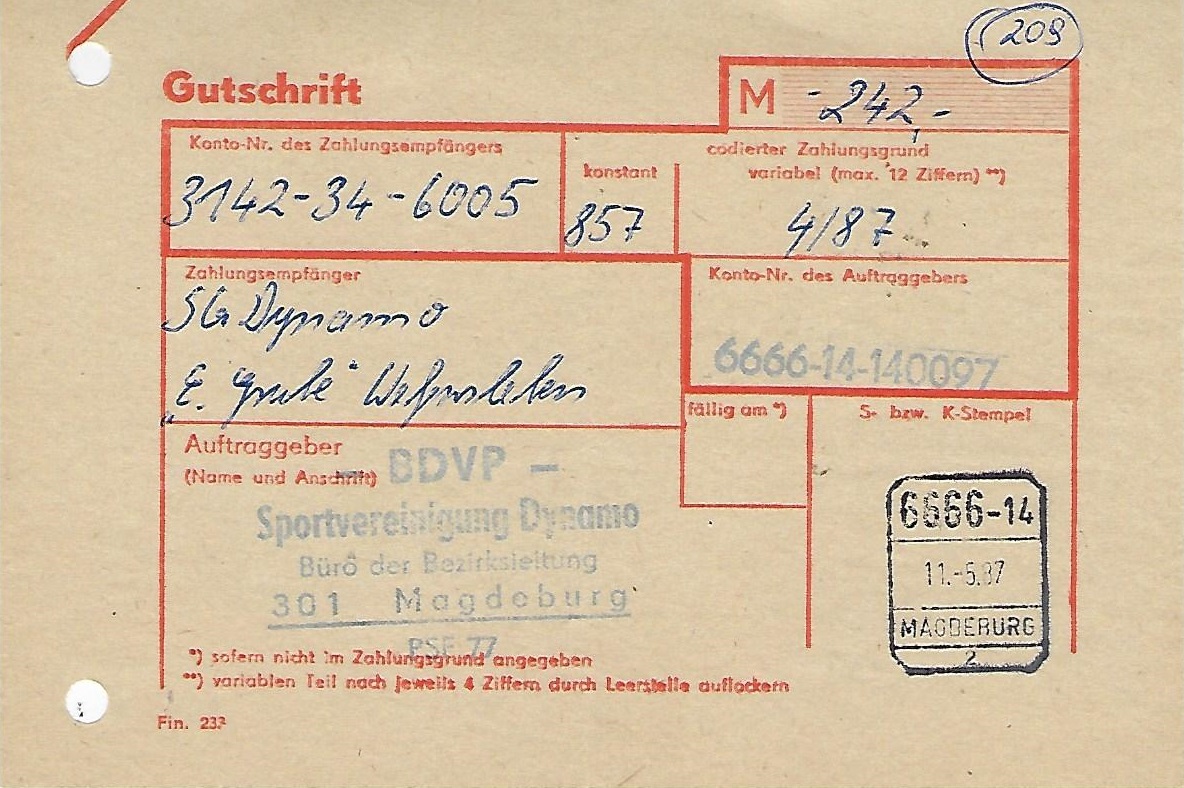 209
Gutschrift
M -242,-
Konto-Nr. des Zahlungsempfängers
3142-34-6005
konstant
857
codierter Zahlungsgrund
variabel (max. 12 Ziffern) **)
4/87
Zahlungsempfänger
SG Dynamo
„E. Grube"
Konto-Nr. des Auftraggebers
6666-14-140097
fällig am *)
S- bzw. K-Stempel
Auftraggeber
(Name und Anschrift)
- BDVP -
Sportvereinigung Dynamo
Büro der Bezirksleitung
301 Magdeburg
PSF 77
6666-14
11.-5.87
MAGDEBURG
2
*) sofern nicht im Zahlungsgrund angegeben
**) variablen Teil nach jeweils 4 Ziffern durch Leerstelle auflockern
Fin. 233